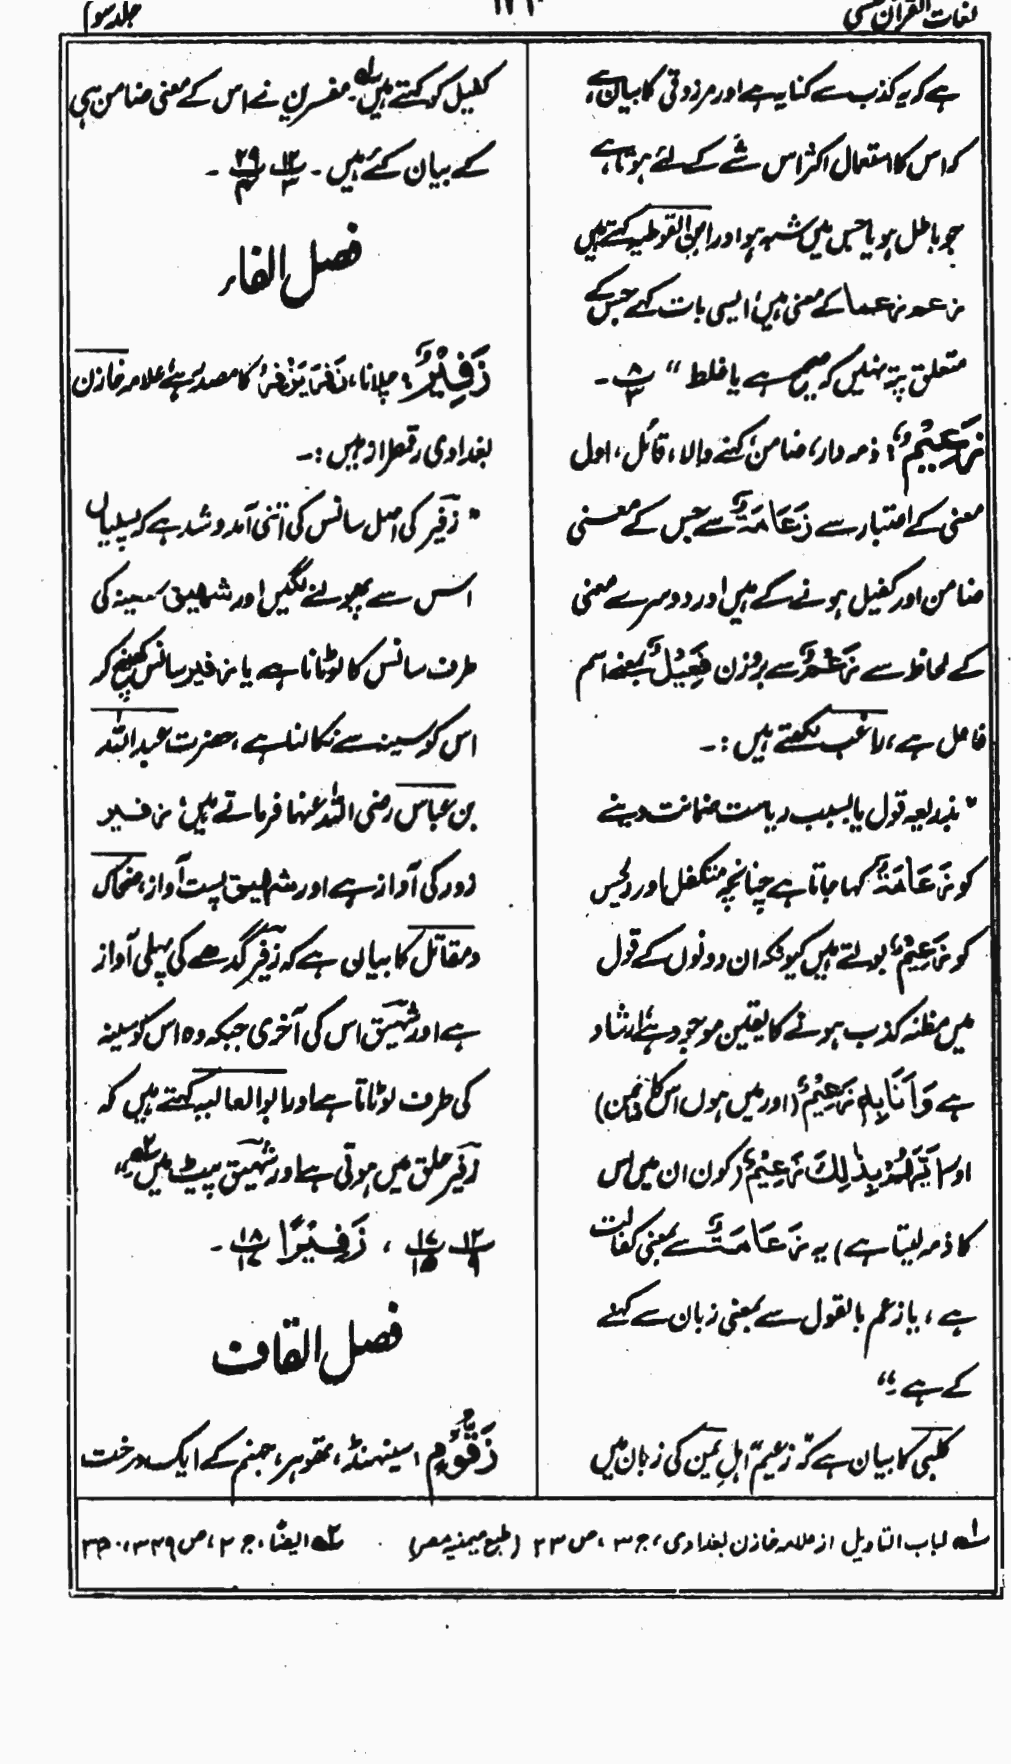 لغات القرآن
جلد سوم
ہے کہ یہ کذب سے کنایہ ہے اور مرزوقی کا بیان ہے
کہ اس کا استعمال اکثر اس شے کے لئے ہوتا ہے
جو باطل ہو یا جس میں شبہ ہو اور ابن القوطیہ کہتے ہیں
زعم زعما کے معنی ہیں، ایسی بات کہے جس کے
متعلق پتہ نہیں کہ صحیح ہے یا غلط “ ۸/۳ ۔
زَعِیْمٌ: ذمہ دار، ضامن، کہنے والا، قائل، اول
معنی کے اعتبار سے زَعَامَۃٌ سے جس کے معنی
ضامن اور کفیل ہونے کے ہیں اور دوسرے معنی
کے لحاظ سے زَعْمٌ سے بروزن فَعِیْلٌ بمعنے اسم
فاعل ہے، راغب لکھتے ہیں :۔
” بذریعہ قول یا بسبب ریاست ضمانت دینے
کو زَعَامَۃٌ کہا جاتا ہے چنانچہ متکفل اور رئیس
کو زَعِیْمٌ بولتے ہیں کیونکہ ان دونوں کے قول
میں مظنہ کذب ہونے کا یقین موجود ہے، ارشاد
ہے وَاَنَا بِہٖ زَعِیْمٌ (اور میں ہوں اس کا ضامن)
اور اَیُّہُمْ بِذٰلِکَ زَعِیْمٌ (کون ان میں اس
کا ذمہ لیتا ہے) یہ زَعَامَۃٌ سے بمعنی کفالت
ہے، یا زعم بالقول سے بمعنی زبان سے کہنے
کے ہے۔“
کلبی کا بیان ہے کہ زعیم اہل یمن کی زبان میں
کفیل کو کہتے ہیں ۱ہ۔ مفسرین نے اس کے معنی ضامن ہی
کے بیان کئے ہیں۔ ۱۲/۳ ۲۹/۴ ۔
فصل الفاء
زَفِیْرٌ: چلانا، زَفَرَ یَزْفِرُ کا مصدر ہے، علامہ خازن
بغدادی رقمطراز ہیں :۔
” زفیر کی اصل سانس کی اتنی آمد و شد ہے کہ پسلیاں
اس سے پھولنے لگیں اور شھیق سینہ کی
طرف سانس کا لوٹانا ہے یا زفیر سانس کھینچ کر
اس کو سینہ سے نکالنا ہے، حضرت عبداللہ
بن عباس رضی اللہ عنہما فرماتے ہیں، زفیر
زور کی آواز ہے اور شھیق پست آواز، ضحاک
و مقاتل کا بیان ہے کہ زفیر گدھے کی پہلی آواز
ہے اور شہیق اس کی آخری جبکہ وہ اس کو سینہ
کی طرف لوٹاتا ہے اور ابوالعالیہ کہتے ہیں کہ
زفیر حلق میں ہوتی ہے اور شہیق پیٹ میں ۲ہ“
۱۲/۹ ۱۷/۱۵ ، زَفِیْرًا ۱۸/۱۷ ۔
فصل القاف
زَقُّوْمٍ ، سینہنڈ، تھوہر، جہنم کے ایک درخت
۱ہ لباب التاویل از علامہ خازن بغدادی، ج ۳، ص ۲۳ (طبع میمنیہ مصر) ۲ہ ایضًا، ج ۲، ص ۳۴۹،